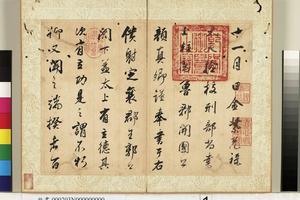 十一月日金紫光祿
大夫檢校刑部尚書
上柱國魯郡開國公
顏真卿謹奉書于右
僕射定襄郡王郭公
閣下蓋太上有立德其
次有立功是之謂不朽
抑又聞之端揆者百